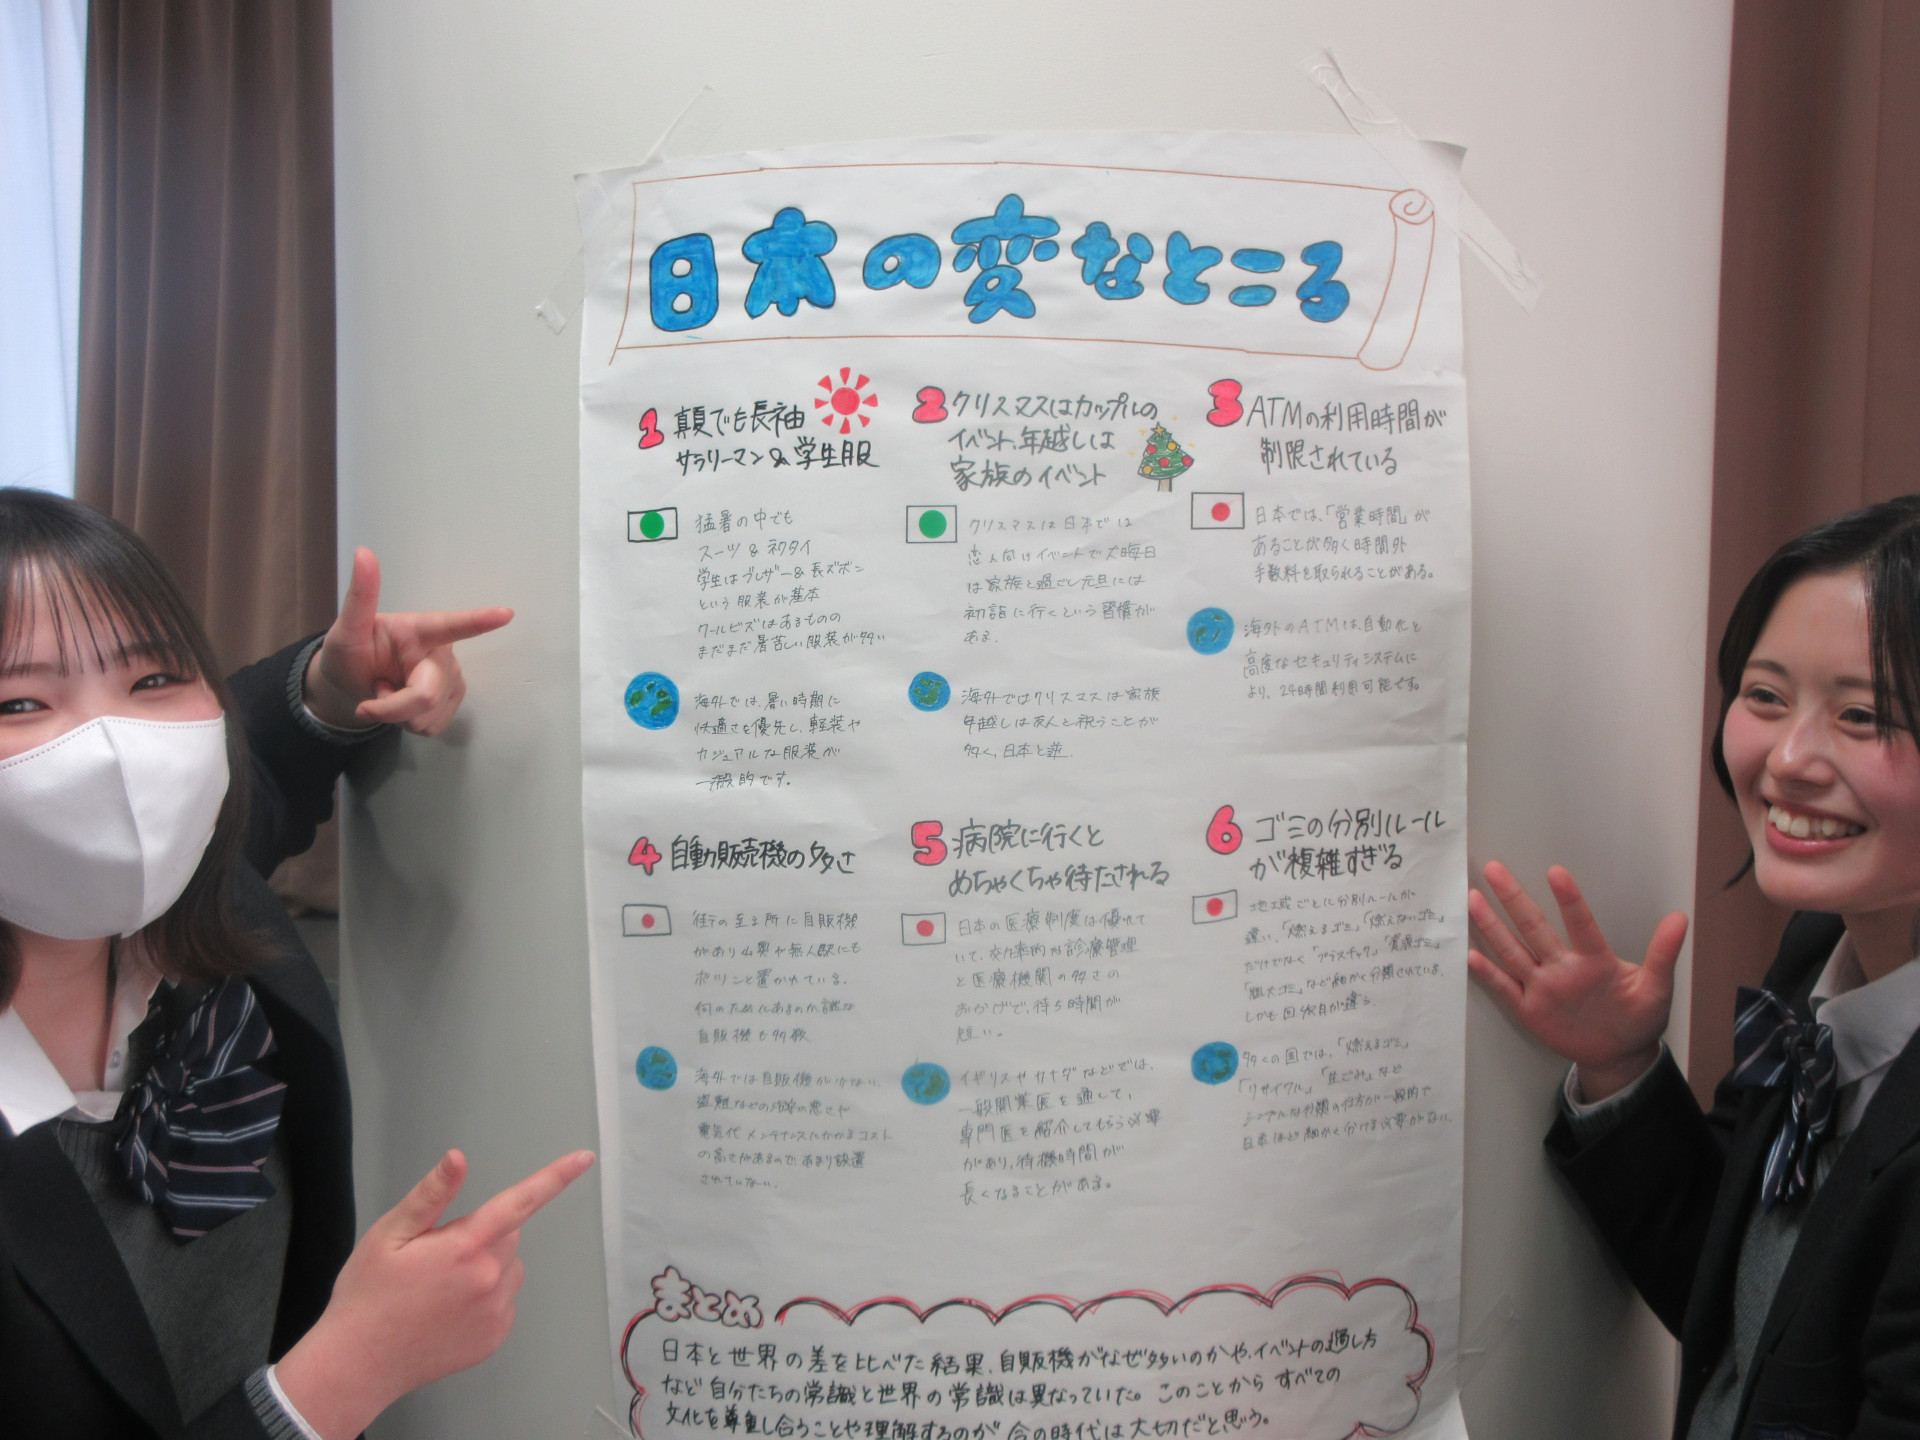 日本の変なところ
1 真夏でも長袖
サラリーマン&学生服
猛暑の中でも
スーツ & ネクタイ
学生はブレザー & 長ズボン
という服装が基本
クールビズはあるものの
まだまだ暑苦しい服装が多い
海外では、暑い時期に
快適さを優先し、軽装や
カジュアルな服装が
一般的です。
2 クリスマスはカップルの
イベント、年越しは
家族のイベント
クリスマスは日本では
恋人向けイベントで大晦日
は家族と過ごし元旦には
初詣に行くという習慣が
ある.
海外ではクリスマスは家族
年越しは友人と祝うことが
多く、日本と逆.
3 ATMの利用時間が
制限されている
日本では、「営業時間」が
あることが多く時間外
手数料を取られることがある。
海外のATMは、自動化と
高度なセキュリティシステムに
より、24時間利用可能です。
4 自動販売機の多さ
街の至る所に自販機
があり山奥や無人駅にも
ポツンと置かれている.
何のためにあるのか謎な
自販機も多数
海外では自販機が少ない.
盗難などの治安の悪さや
電気代 メンテナンスにかかるコスト
の高さがあるので、あまり設置
されていない.
5 病院に行くと
めちゃくちゃ待たされる
日本の医療制度は優れて
いて、効率的な診療管理
と医療機関の多さの
おかげで、待ち時間が
短い。
イギリスやカナダなどでは、
一般開業医を通して、
専門医を紹介してもらう必要
があり、待機時間が
長くなることがある。
6 ゴミの分別ルール
が複雑すぎる
地域ごとに分別ルールが
違い、「燃えるゴミ」「燃えないゴミ」
だけでなく「プラスチック」「資源ゴミ」
「粗大ゴミ」など細かく分類されている.
しかも回収日が違う.
多くの国では、「燃えるゴミ」
「リサイクル」「生ごみ」など
シンプルな分類の仕方が一般的で
日本ほど細かく分ける必要がない.
まとめ
日本と世界の差を比べた結果、自販機がなぜ多いのかや、イベントの過し方
など自分たちの常識と世界の常識は異なっていた。このことからすべての
文化を尊重し合うことや理解するのが今の時代は大切だと思う。